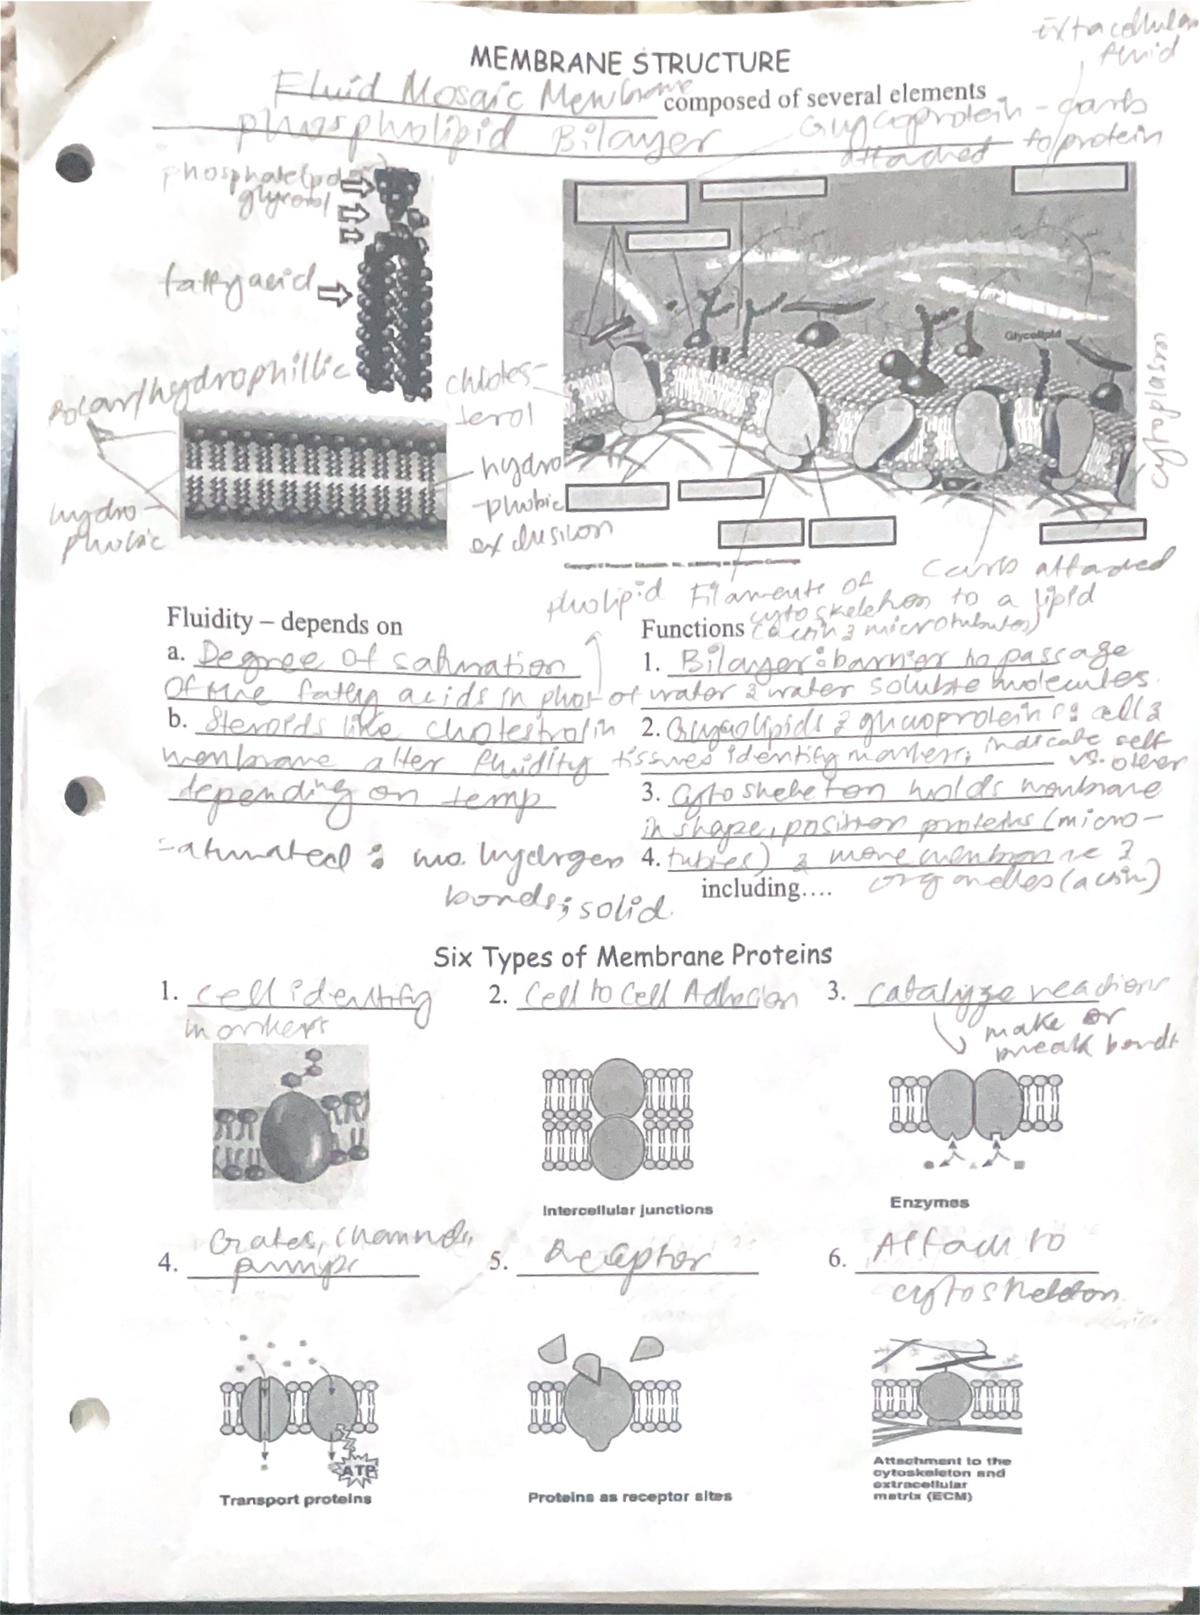 extacellular
fluid
MEMBRANE STRUCTURE
Fluid Mosaic Membrane composed of several elements
phospholipid Bilayer
Glycoprotein - carb
attached to protein
phosphate
glycerol
fatty acid
Polar/hydrophillic
choles-
terol
hydro
-phobic
exclusion
hydro
phobic
Glycolipid
cytoplasm
carb attached
to a lipid
Filaments of
cytoskeleton
(actin & microtubules)
pholipid
Fluidity – depends on
a. Degree of saturation
of the fatty acids in phos-
b. Steroids like cholestrol in
membrane alter fluidity
depending on temp
saturated : mo. hydrgen
bonds; solid.
Functions
1. Bilayer: barrier to passage
of water & water soluble molecules.
2. Glycolipids & glycoproteins: cell &
tissues identify markers; indicate self
vs. other
3. cytoskeleton holds membrane
in shape, position proteins (micro-
4. tubles) & move membrane &
organelles (actin)
including....
Six Types of Membrane Proteins
1. cell identify
markers
2. Cell to Cell Adhesion
3. catalyze reactions
make or
break bonds
Intercellular junctions
Enzymes
4. Gates, channels,
pumps
5. Receptor
6. Attach to
cytoskeleton
ATP
Transport proteins
Proteins as receptor sites
Attachment to the
cytoskeleton and
extracellular
matrix (ECM)